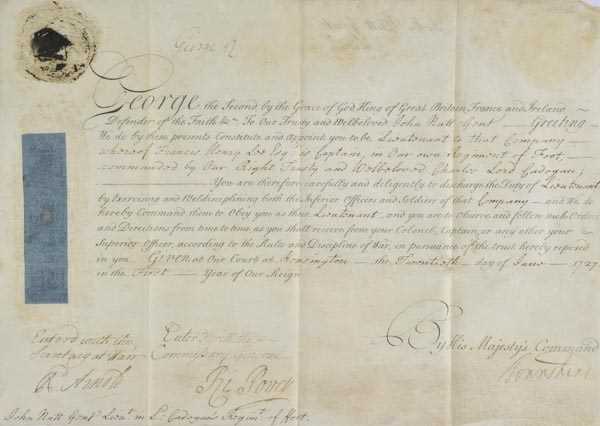 George R
George the Second, by the Grace of God King of Great Britain France and Ireland ~
Defender of the Faith &c. To Our Trusty and Welbeloved John Natt Gent — Greeting ~
We do by these presents Constitute and Appoint you to be Lieutenant in that Company —
whereof Francis Henry Lee Esqr is Captain, in Our own Regiment of Foot,
commanded by Our Right Trusty and Welbeloved Charles Lord Cadogan;
You are therefore carefully and diligently to discharge the Duty of Lieutenant
by Exercising and Welldisciplining both the Inferior Officers and Soldiers of that Company — and We do
hereby Command them to Obey you as their Lieutenant, and you are to observe and follow such Orders
and Directions from time to time, as you shall receive from your Colonel, Captain, or any other your ~
Superior Officer, according to the Rules and Discipline of War, in pursuance of the trust hereby reposed
in you. Given at Our Court at Kensington — the Twentieth — day of June — 1727.
in the First — Year of Our Reign
By His Majesty's Command
Enterd with the
Secretary at War
Enter'd with the
Commissary General
R Arnold
John Natt Gent Lieut. in Ld. Cadogan's Regimt. of Foot.